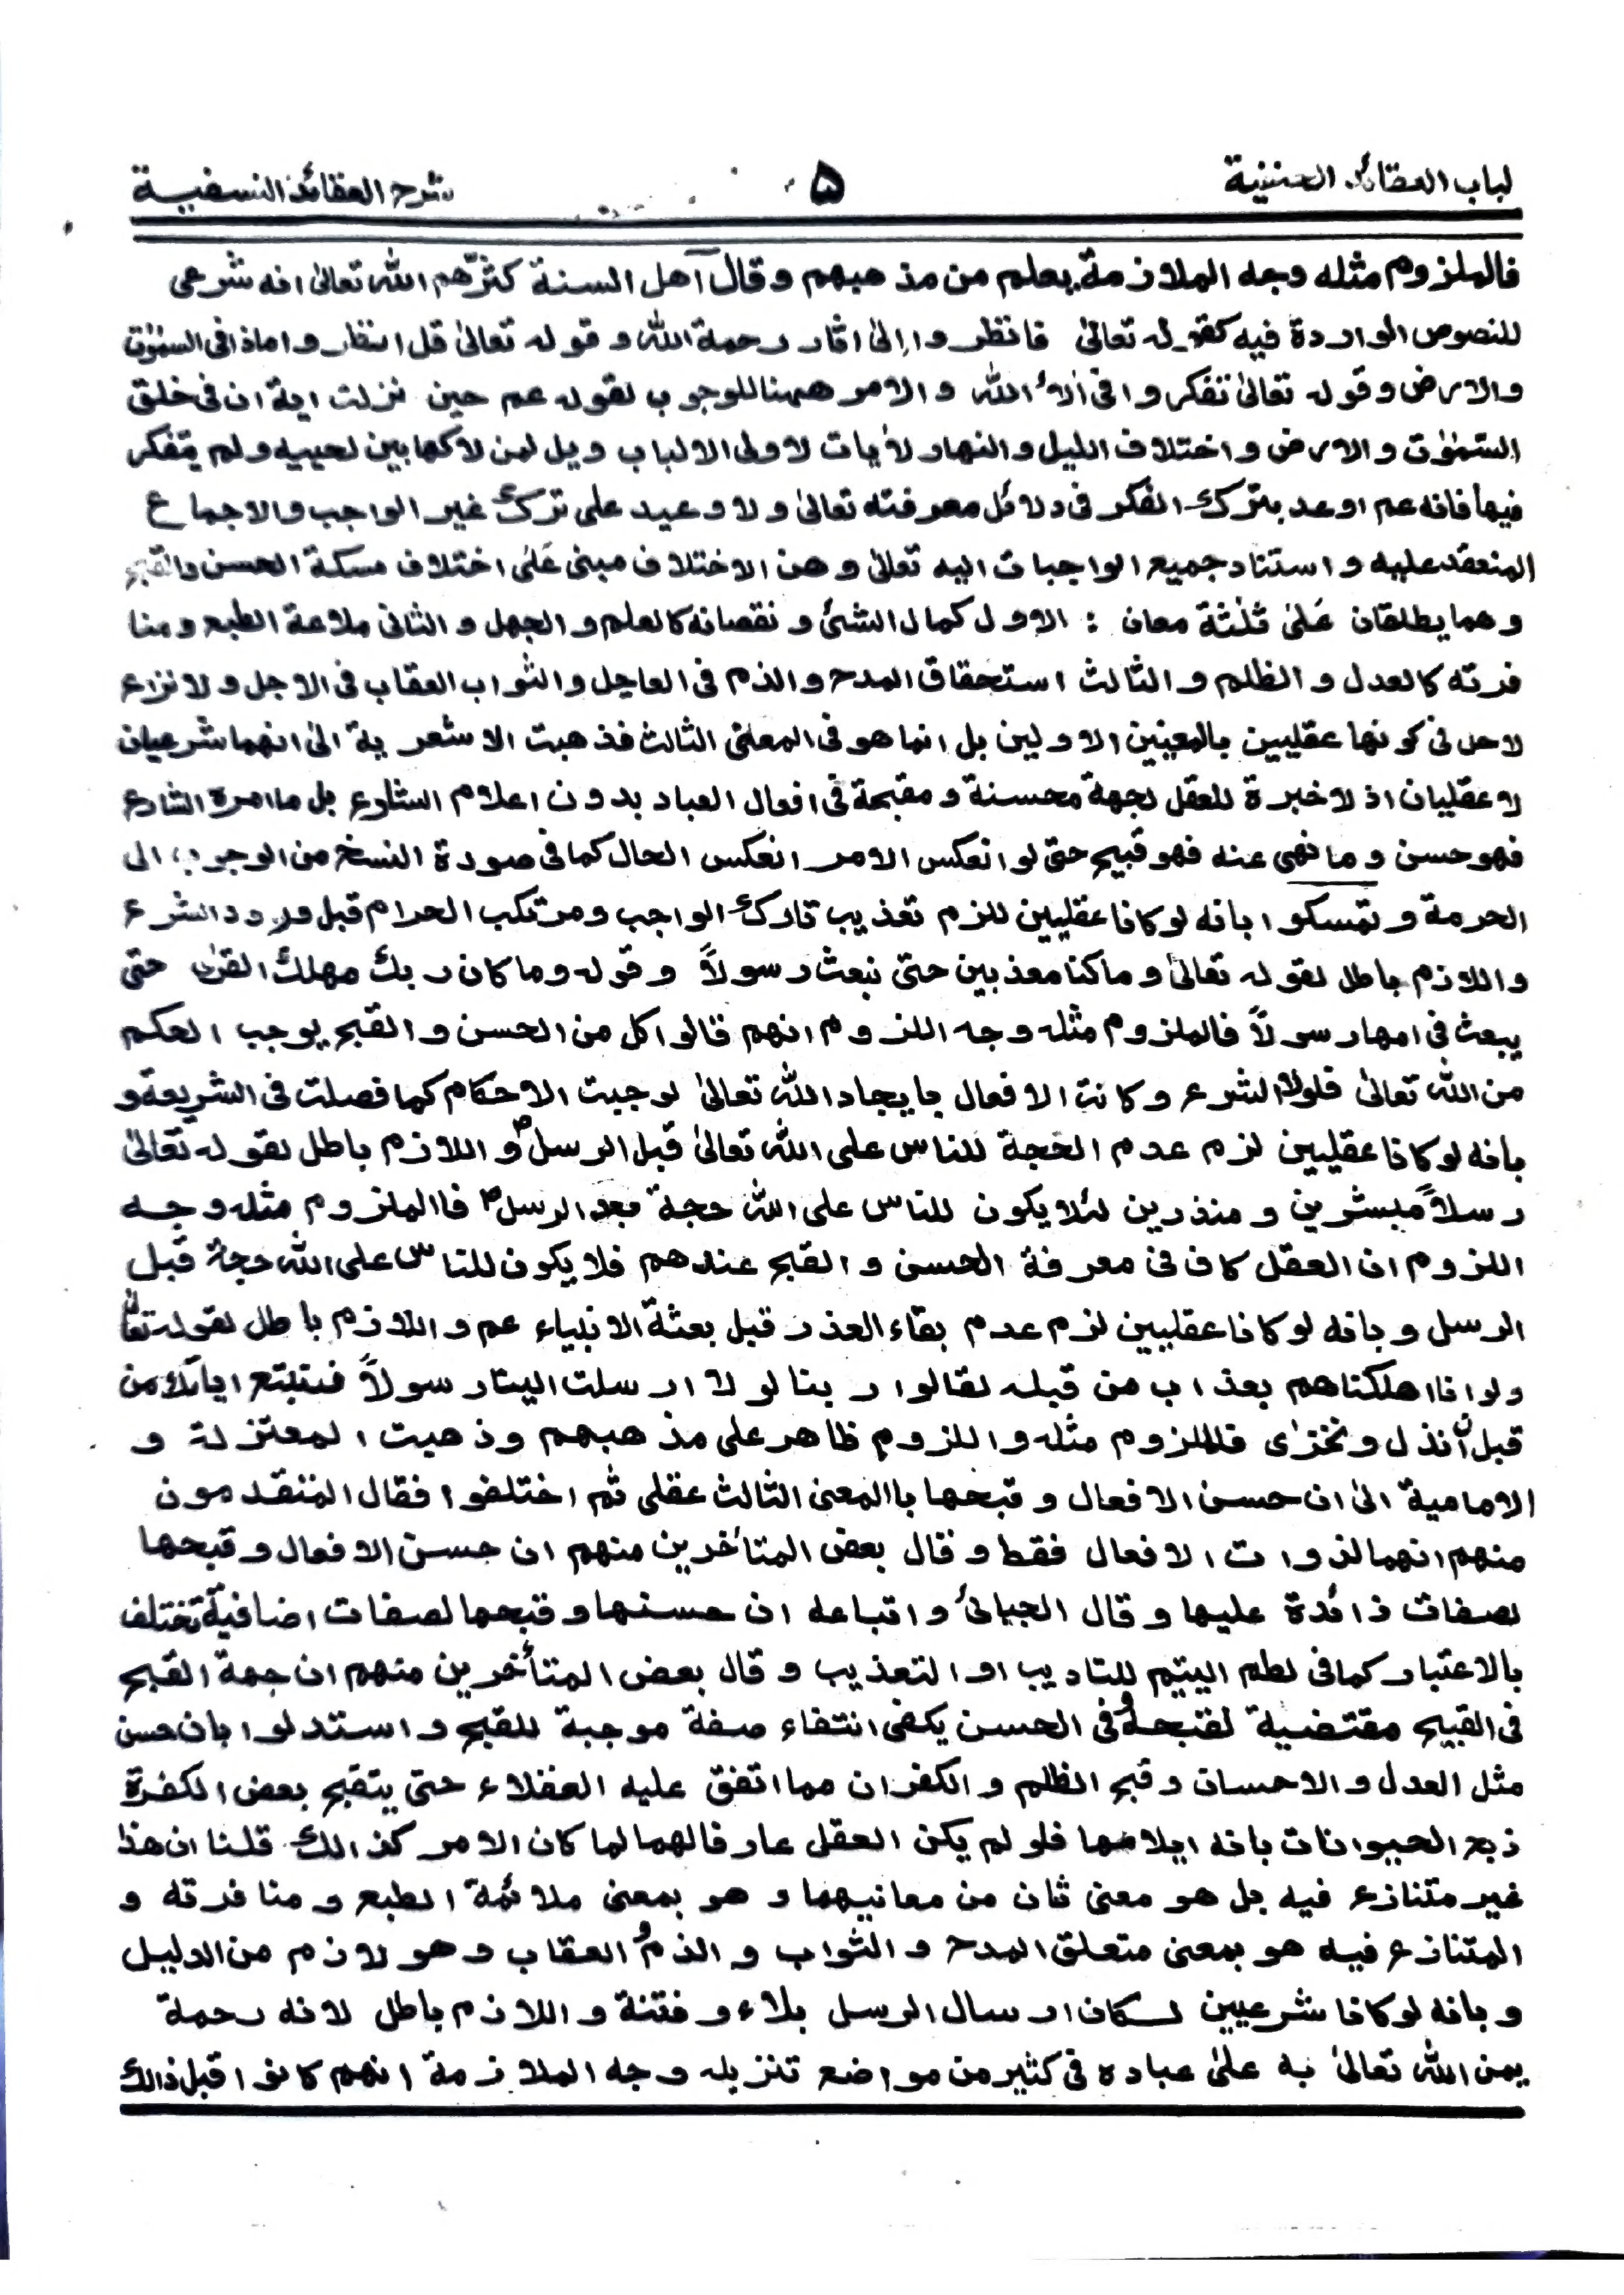 لباب العقائد الحنفية
۵
شرح العقائد النسفية
فالملزوم مثله وجه الملازمة يعلم من مذهبهم وقال اهل السنة كثرهم الله تعالىٰ انه شرعى
للنصوص الواردة فيه كقوله تعالىٰ فانظروا الىٰ اٰثار رحمة الله وقوله تعالىٰ قل انظروا ماذا فى السمٰوٰت
والارض وقوله تعالىٰ تفكروا فى اٰلاء الله والامر ههنا للوجوب لقوله عم حين نزلت اية ان فى خلق
السمٰوٰت والارض واختلاف الليل والنهار لاٰيات لاولى الالباب ويل لمن لاكها بين لحييه ولم يتفكر
فيها فانه عم اوعد بترك الفكر فى دلائل معرفته تعالىٰ ولا وعيد على ترك غير الواجب والاجماع
المنعقد عليه واستناد جميع الواجبات اليه تعالىٰ وهذ الاختلاف مبنى عَلىٰ اختلاف مسئلة الحسن والقبح
وهما يطلقان عَلىٰ ثلٰثة معان : الاول كمال الشئ ونقصانه كالعلم والجهل والثانى ملاعة الطبع ومنا
فرته كالعدل والظلم والثالث استحقاق المدح والذم فى العاجل والثواب العقاب فى الاجل ولا نزاع
لاحد فى كونها عقليين بالمعنيين الاولين بل انما هو فى المعنىٰ الثالث فذهبت الاشعرية الىٰ انهما شرعيان
لا عقليان اذ لا خبرة للعقل بجهة محسنة ومقبحة فى افعال العباد بدون اعلام الشارع بل ما امره الشارع
فهو حسن وما نهى عنه فهو قبيح حتى لو انعكس الامر انعكس الحال كما فى صورة النسخ من الوجوب الى
الحرمة وتمسكوا بانه لو كانا عقليين للزم تعذيب تارك الواجب ومرتكب الحرام قبل ورود الشرع
واللازم باطل لقوله تعالىٰ وما كنا معذبين حتىٰ نبعث رسولاً وقوله وما كان ربك مهلك القرىٰ حتى
يبعث فى امها رسولاً فالملزوم مثله وجه اللزوم انهم قالوا كل من الحسن والقبح يوجب الحكم
من الله تعالىٰ فلولا الشرع وكانت الافعال بايجاد الله تعالىٰ لوجبت الاحكام كما فصلت فى الشريعة و
بانه لو كانا عقليين لزم عدم الحجة للناس على الله تعالىٰ قبل الرسلؑ واللازم باطل لقوله تعالىٰ
رسلاً مبشرين ومنذرين لئلا يكون للناس على الله حجة بعد الرسلؑ فاالملزوم مثله وجه
اللزوم ان العقل كاف فى معرفة الحسن والقبح عندهم فلا يكون للناس على الله حجة قبل
الرسل وبانه لو كانا عقليين لزم عدم بقاء العذر قبل بعثة الانبياء عم واللازم باطل لقوله تعالىٰ
ولو انا اهلكناهم بعذاب من قبله لقالوا ربنا لولا ارسلت الينا رسولاً فنتبع اياتك من
قبل ان نذل ونخزىٰ فالملزوم مثله واللزوم ظاهر على مذهبهم وذهبت المعتزلة و
الامامية الىٰ ان حسن الافعال وقبحها باالمعنى الثالث عقلى ثم اختلفوا فقال المتقدمون
منهم انهما لذوات الافعال فقط وقال بعض المتأخرين منهم ان حسن الافعال وقبحها
لصفات زائدة عليها وقال الجبائى واتباعه ان حسنها وقبحها لصفات اضافية تختلف
بالاعتبار كما فى لطم اليتيم للتاديب او التعذيب وقال بعض المتأخرين منهم ان جهة القبح
فى القبيح مقتضية لقبحه وفى الحسن يكفى انتفاء صفة موجبة للقبح واستدلوا بان حسن
مثل العدل والاحسان وقبح الظلم والكفران مما اتفق عليه العقلاء حتى يتقبح بعض الكفرة
ذبح الحيوانات بانه ايلامها فلو لم يكن العقل عارفا لهما لما كان الامر كذالك قلنا ان هذا
غير متنازع فيه بل هو معنى ثان من معانيهما وهو بمعنى ملائمة الطبع ومنافرته و
المتنازع فيه هو بمعنى متعلق المدح والثواب والذم و العقاب وهو لازم من الدليل
وبانه لو كانا شرعيين لكان ارسال الرسل بلاء وفتنة واللازم باطل لانه رحمة
يمن الله تعالىٰ به علىٰ عباده فى كثير من مواضع تنزيله وجه الملازمة انهم كانوا قبل ذالك